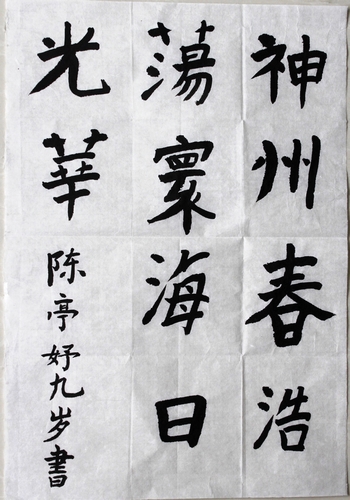 神州春浩
蕩寰海日
光華
陈亭妤九岁書